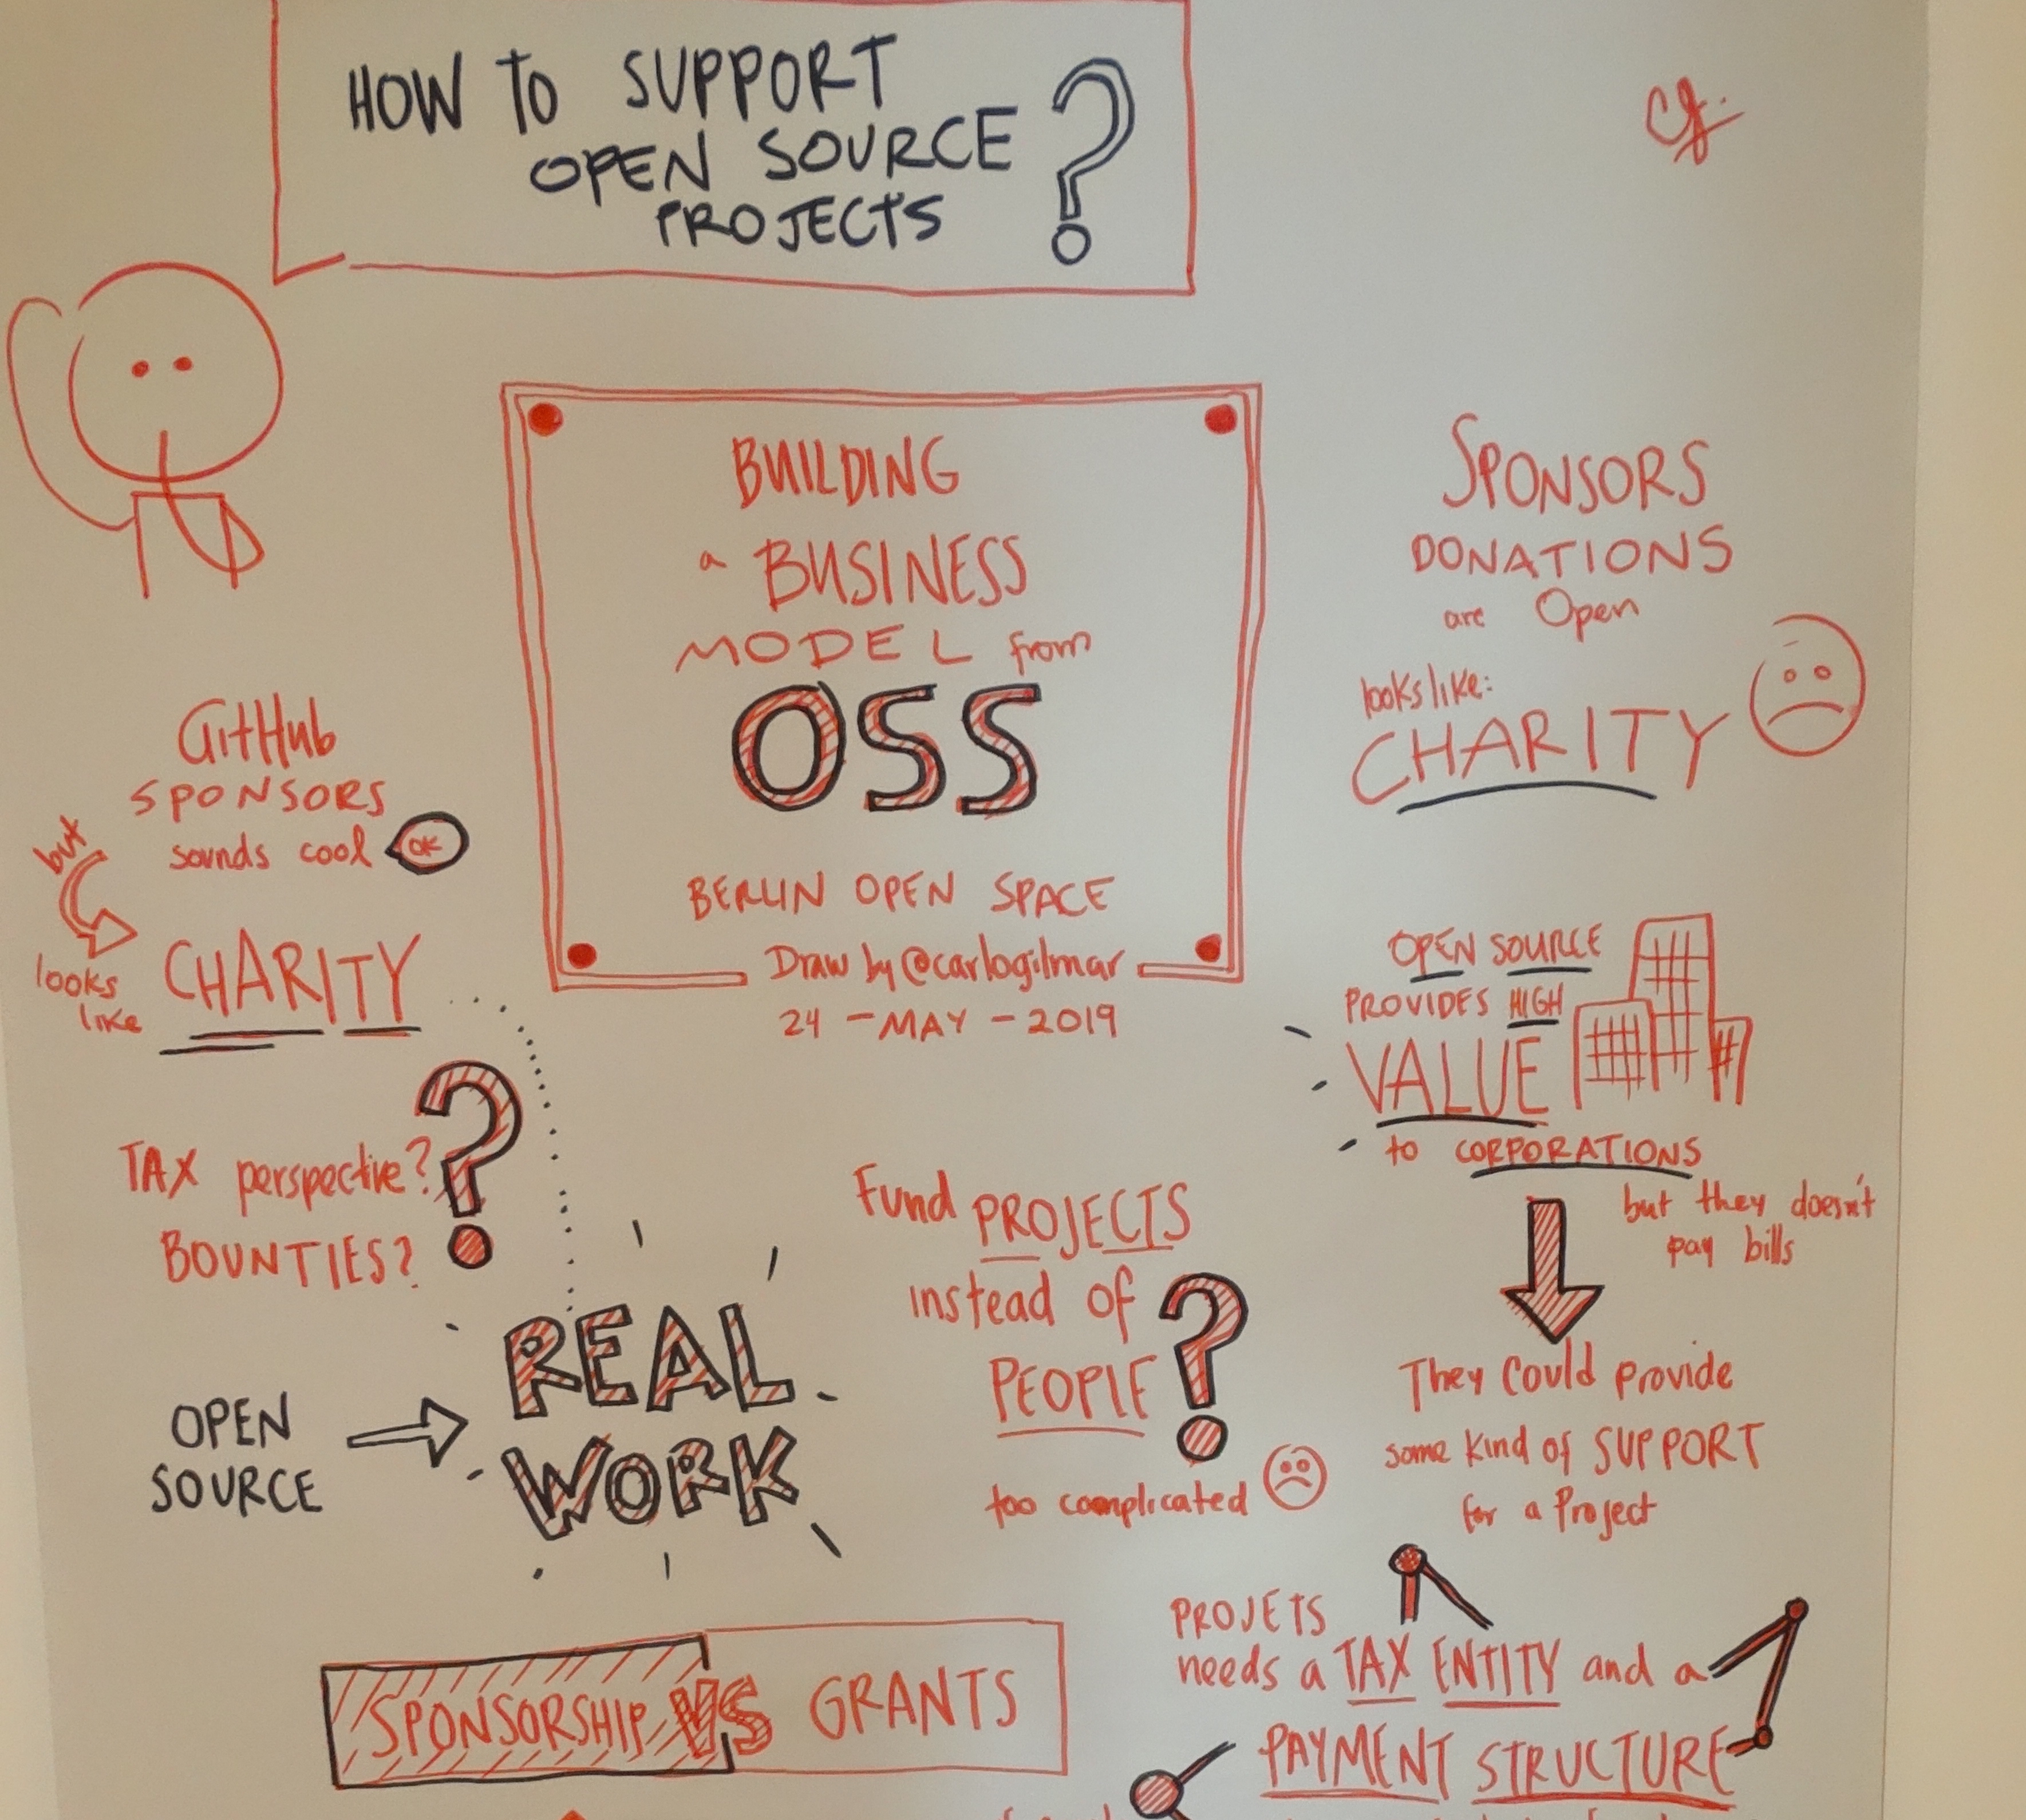 HOW TO SUPPORT
OPEN SOURCE
PROJECTS ?
BUILDING
a BUSINESS
MODEL from
OSS
BERLIN OPEN SPACE
Draw by @carlogilmar
24 - MAY - 2019
SPONSORS
DONATIONS
are Open
looks like:
CHARITY
GitHub
SPONSORS
sounds cool
OK
but
looks
like
CHARITY
TAX perspective?
BOUNTIES?
?
OPEN
SOURCE
REAL
WORK
Fund PROJECTS
instead of
PEOPLE ?
too complicated
OPEN SOURCE
PROVIDES HIGH
VALUE
to CORPORATIONS
but they doesn't
pay bills
They could provide
some kind of SUPPORT
for a Project
PROJETS
needs a TAX ENTITY and a
PAYMENT STRUCTURE
SPONSORSHIP VS GRANTS